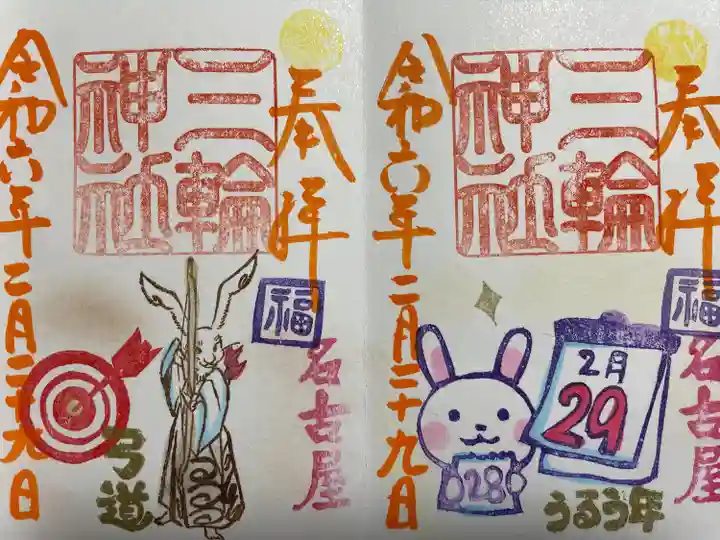 奉拝
三輪
神社
令和六年二月二十九日
福
名古屋
弓道
奉拝
三輪
神社
令和六年二月二十九日
福
名古屋
2月
29
28
うるう年